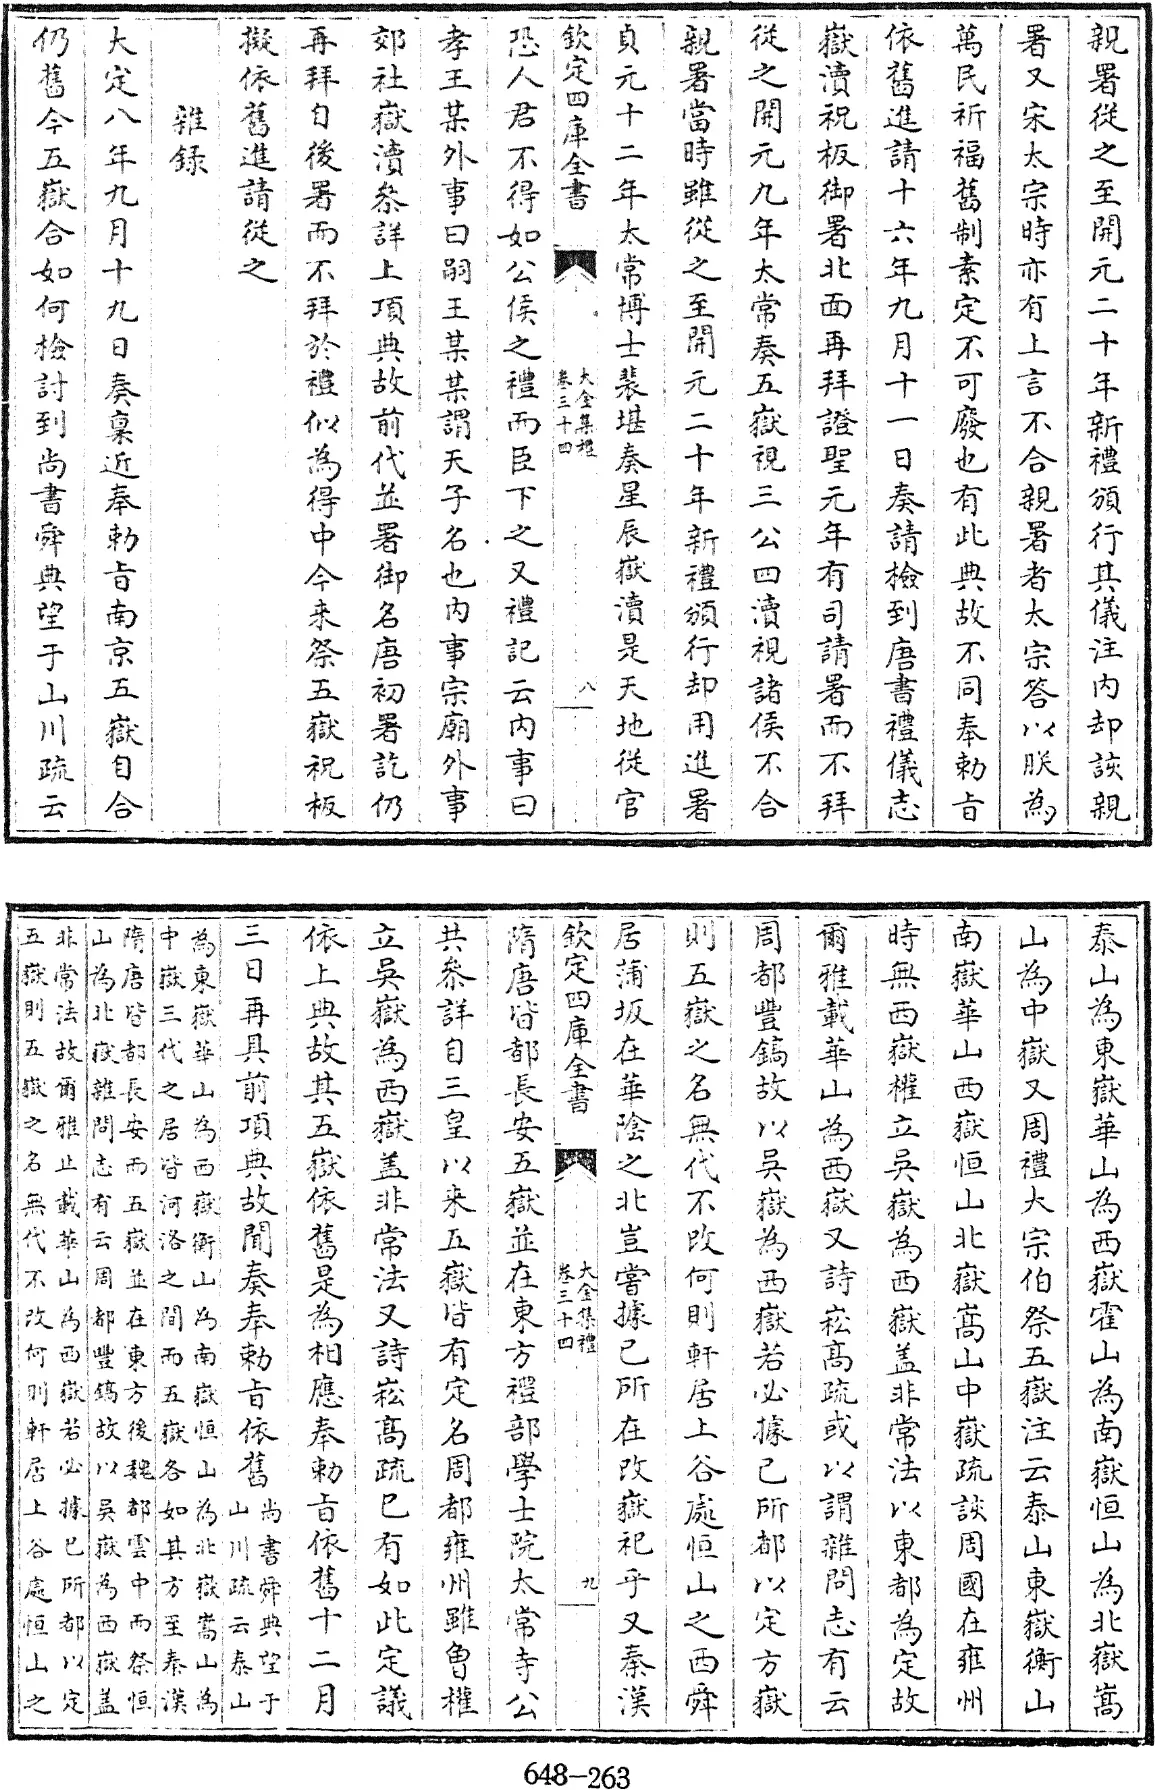 親署從之至開元二十年新禮頒行其儀注内却該親
署又宋太宗時亦有上言不合親署者太宗答以朕為
萬民祈福舊制素定不可廢也有此典故不同奉勅旨
依舊進請十六年九月十一日奏請檢到唐書禮儀志
嶽瀆祝板御署北面再拜證聖元年有司請署而不拜
從之開元九年太常奏五嶽視三公四瀆視諸侯不合
親署當時雖從之至開元二十年新禮頒行却用進署
貞元十二年太常博士裴堪奏星辰嶽瀆是天地從官
欽定四庫全書
大金集禮
卷三十四
八
恐人君不得如公侯之禮而臣下之又禮記云内事曰
孝王某外事曰嗣王某某謂天子名也内事宗廟外事
郊社嶽瀆參詳上項典故前代並署御名唐初署訖仍
再拜自後署而不拜於禮似為得中今来祭五嶽祝板
擬依舊進請從之
雜録
大定八年九月十九日奏稟近奉勅旨南京五嶽自合
仍舊今五嶽合如何檢討到尚書舜典望于山川疏云
泰山為東嶽華山為西嶽霍山為南嶽恒山為北嶽嵩
山為中嶽又周禮大宗伯祭五嶽注云泰山東嶽衡山
南嶽華山西嶽恒山北嶽嵩山中嶽疏該周國在雍州
時無西嶽權立吳嶽為西嶽盖非常法以東都為定故
爾雅載華山為西嶽又詩崧髙疏或以謂雜問志有云
周都豐鎬故以吳嶽為西嶽若必據己所都以定方嶽
則五嶽之名無代不改何則軒居上谷處恒山之西舜
居蒲坂在華陰之北豈嘗據己所在改嶽祀乎又秦漢
欽定四庫全書
大金集禮
卷三十四
九
隋唐皆都長安五嶽並在東方禮部學士院太常寺公
共參詳自三皇以来五嶽皆有定名周都雍州雖㑹權
立吳嶽為西嶽盖非常法又詩崧髙疏已有如此定議
依上典故其五嶽依舊是為相應奉勅旨依舊十二月
三日再具前項典故聞奏奉勅旨依舊尚書舜典望于
山川疏云泰山
為東嶽華山為西嶽衡山為南嶽恒山為北嶽嵩山為
中嶽三代之居皆河洛之間而五嶽各如其方至秦漢
隋唐皆都長安而五嶽並在東方後魏都雲中而祭恒
山為北嶽雜問志有云周都豐鎬故以吳嶽為西嶽盖
非常法故爾雅止載華山為西嶽若必據己所都以定
五嶽則五嶽之名無代不改何則軒居上谷處恒山之
648-263